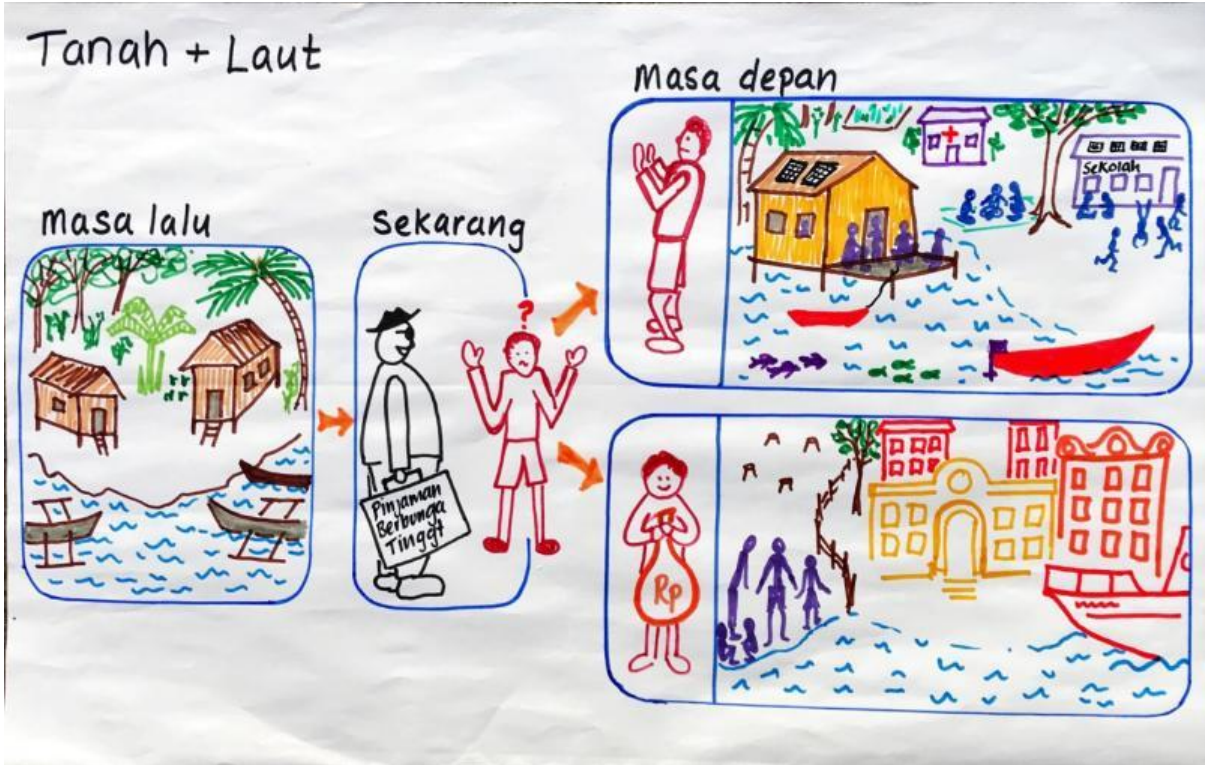 Tanah + Laut
masa lalu
Sekarang
?
Pinjaman
Berbunga
Tinggi
masa depan
Sekolah
Rp